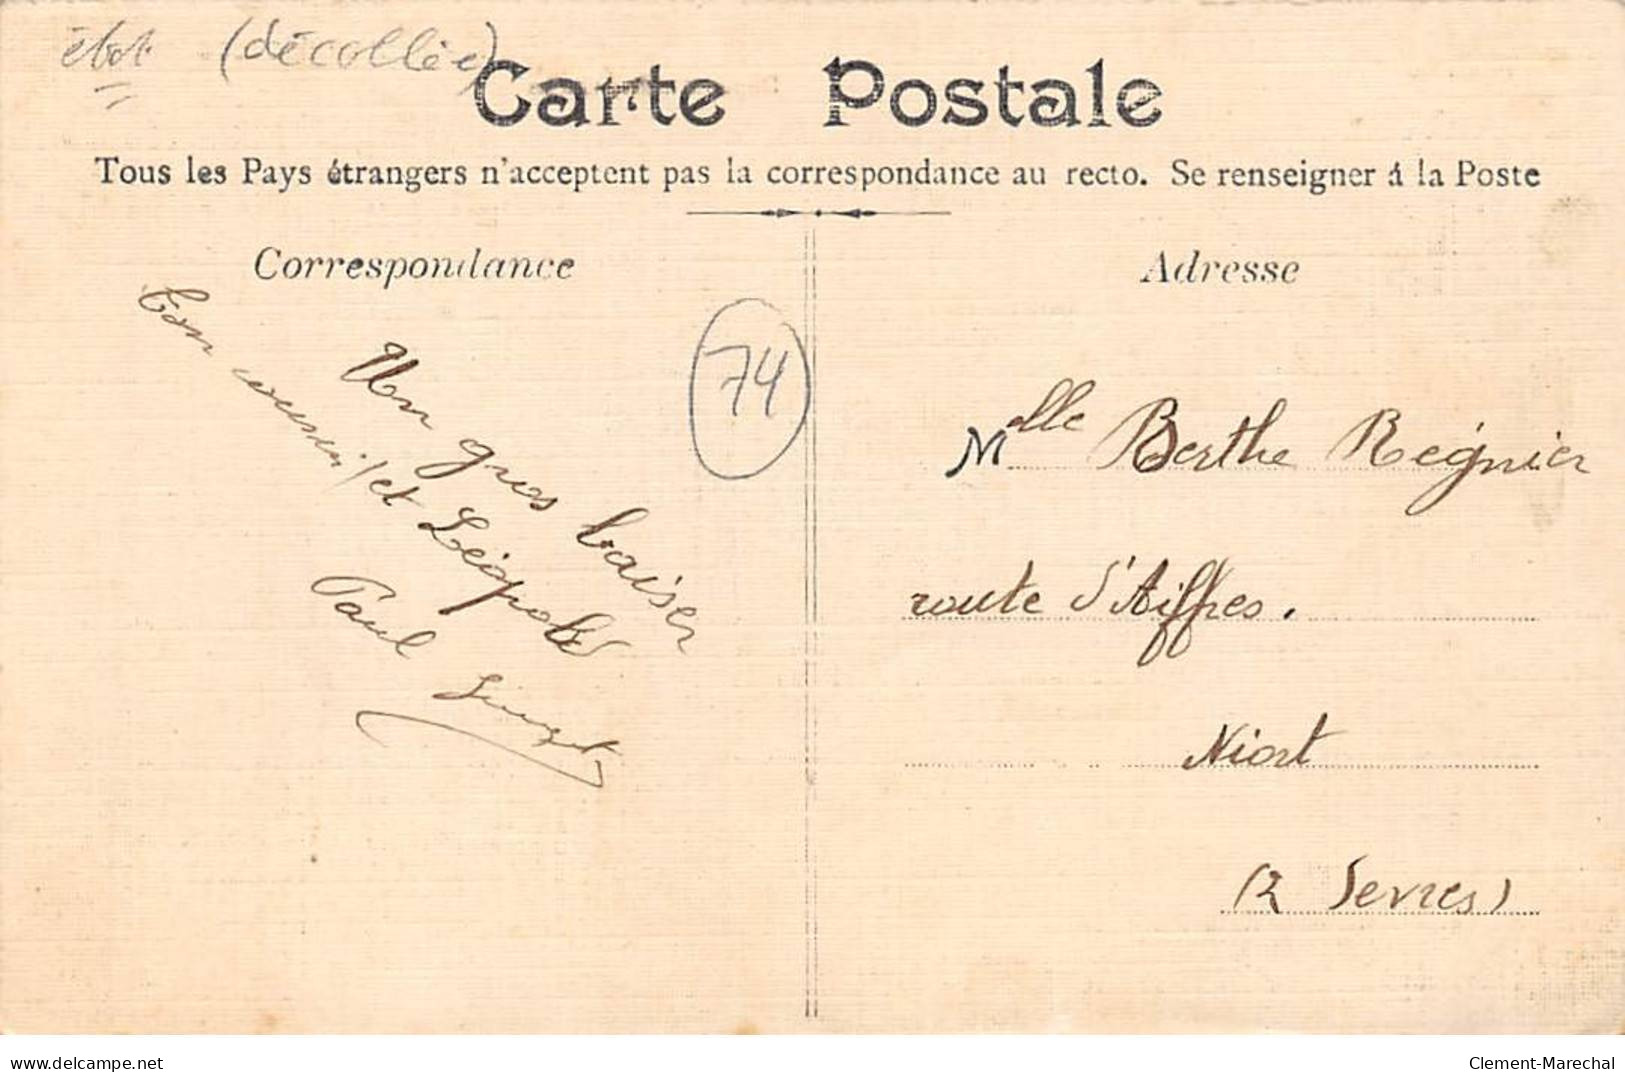 état (décollée)
Carte Postale
Tous les Pays étrangers n'acceptent pas la correspondance au recto. Se renseigner á la Poste
Correspondance
Un gros baiser
Ton cousin et Léopold
Paul
74
Adresse
Melle Berthe Régnier
route d'Aiffres.
Niort
(2 Sevres)
www.delcampe.net
Clement-Marechal